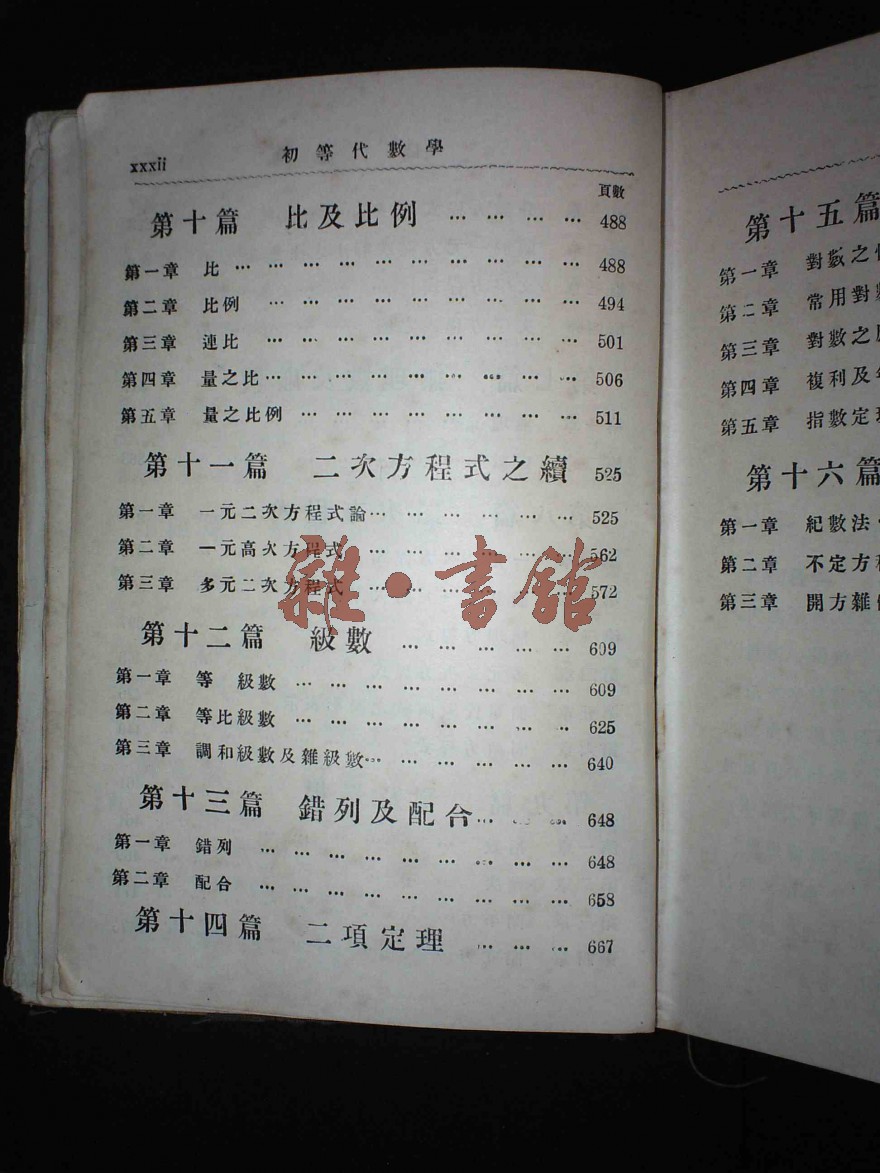 xxxii 初等代數學
頁數
第十篇 比及比例 … … … … 488
第一章 比 … … … … … … … … … … 488
第二章 比例 … … … … … … … … … 494
第三章 連比 … … … … … … … … 501
第四章 量之比 … … … … … … … … … 506
第五章 量之比例 … … … … … … … … 511
第十一篇 二次方程式之續 525
第一章 一元二次方程式論 … … … … … … 525
第二章 一元高次方程式 … … … … … … 562
第三章 多元二次方程式 … … … … … … 572
第十二篇 級數 … … … … … 609
第一章 等 級數 … … … … … … … … 609
第二章 等比級數 … … … … … … … … 625
第三章 調和級數及雜級數 … … … … … … 640
第十三篇 錯列及配合 … … … 648
第一章 錯列 … … … … … … … … … 648
第二章 配合 … … … … … … … … … 658
第十四篇 二項定理 … … … 667
雜·書館
第十五篇
第一章 對數之
第二章 常用對
第三章 對數之
第四章 複利及
第五章 指數定
第十六篇
第一章 紀數法
第二章 不定方
第三章 開方雜